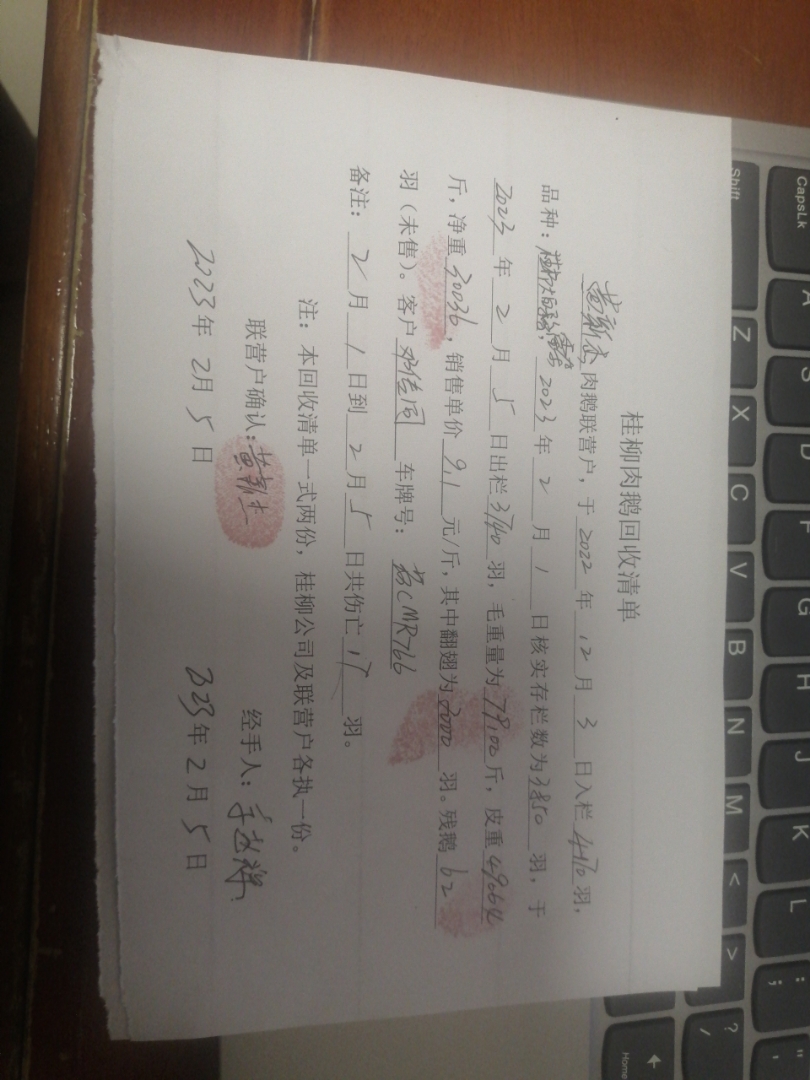 桂柳肉鹅回收清单
黄新杰 肉鹅联营户，于 2022 年 12 月 3 日入栏 4470 羽，
品种： 2023 年 2 月 1 日核实存栏数为 3850 羽，于
2023 年 2 月 5 日出栏 3740 羽，毛重量为 79100 斤，皮重 49064
斤，净重 30036 ，销售单价 9.1 元/斤，其中翻翅为 2000 羽。残鹅 62
羽（未售）。客户 邓传周 车牌号： CMR766
备注： 2 月 1 日到 2 月 5 日共伤亡 羽。
注：本回收清单一式两份，桂柳公司及联营户各执一份。
联营户确认：黄新杰 经手人：
2023年 2月 5日 2023年 2月 5日
CapsLk A S D F G H J K L : ; " '
Shift Z X C V B N M < , > . ? /
Home